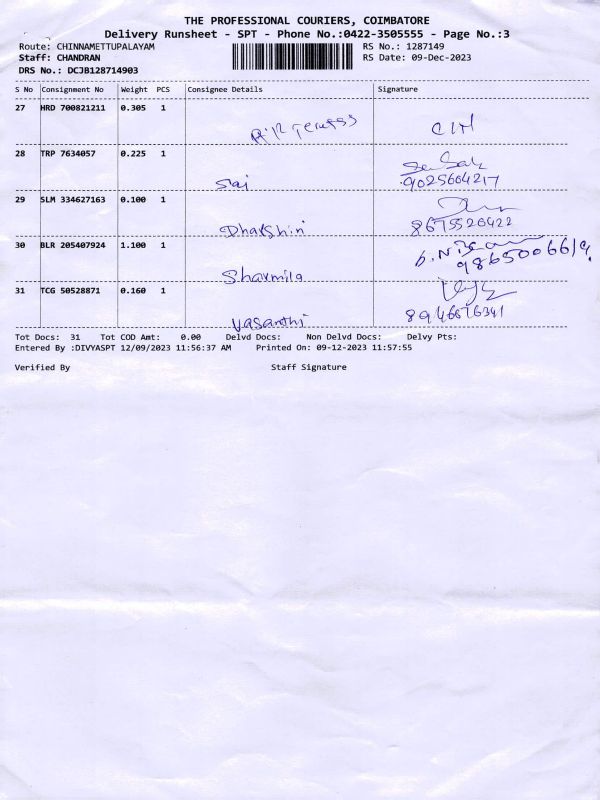 THE PROFESSIONAL COURIERS, COIMBATORE
Delivery Runsheet - SPT - Phone No.:0422-3505555 - Page No.:3
Route: CHINNAMETTUPALAYAM RS No.: 1287149
Staff: CHANDRAN RS Date: 09-Dec-2023
DRS No.: DCJB128714903
S No Consignment No Weight PCS Consignee Details Signature
27 HRD 700821211 0.305 1
28 TRP 7634057 0.225 1
Sai 9025604217
29 SLM 334627163 0.100 1
Dharshini 8675520422
30 BLR 205407924 1.100 1
Sharmila 9865006619
31 TCG 50528871 0.160 1
Vasanthi 8946676341
Tot Docs: 31 Tot COD Amt: 0.00 Delvd Docs: Non Delvd Docs: Delvy Pts:
Entered By :DIVYASPT 12/09/2023 11:56:37 AM Printed On: 09-12-2023 11:57:55
Verified By Staff Signature